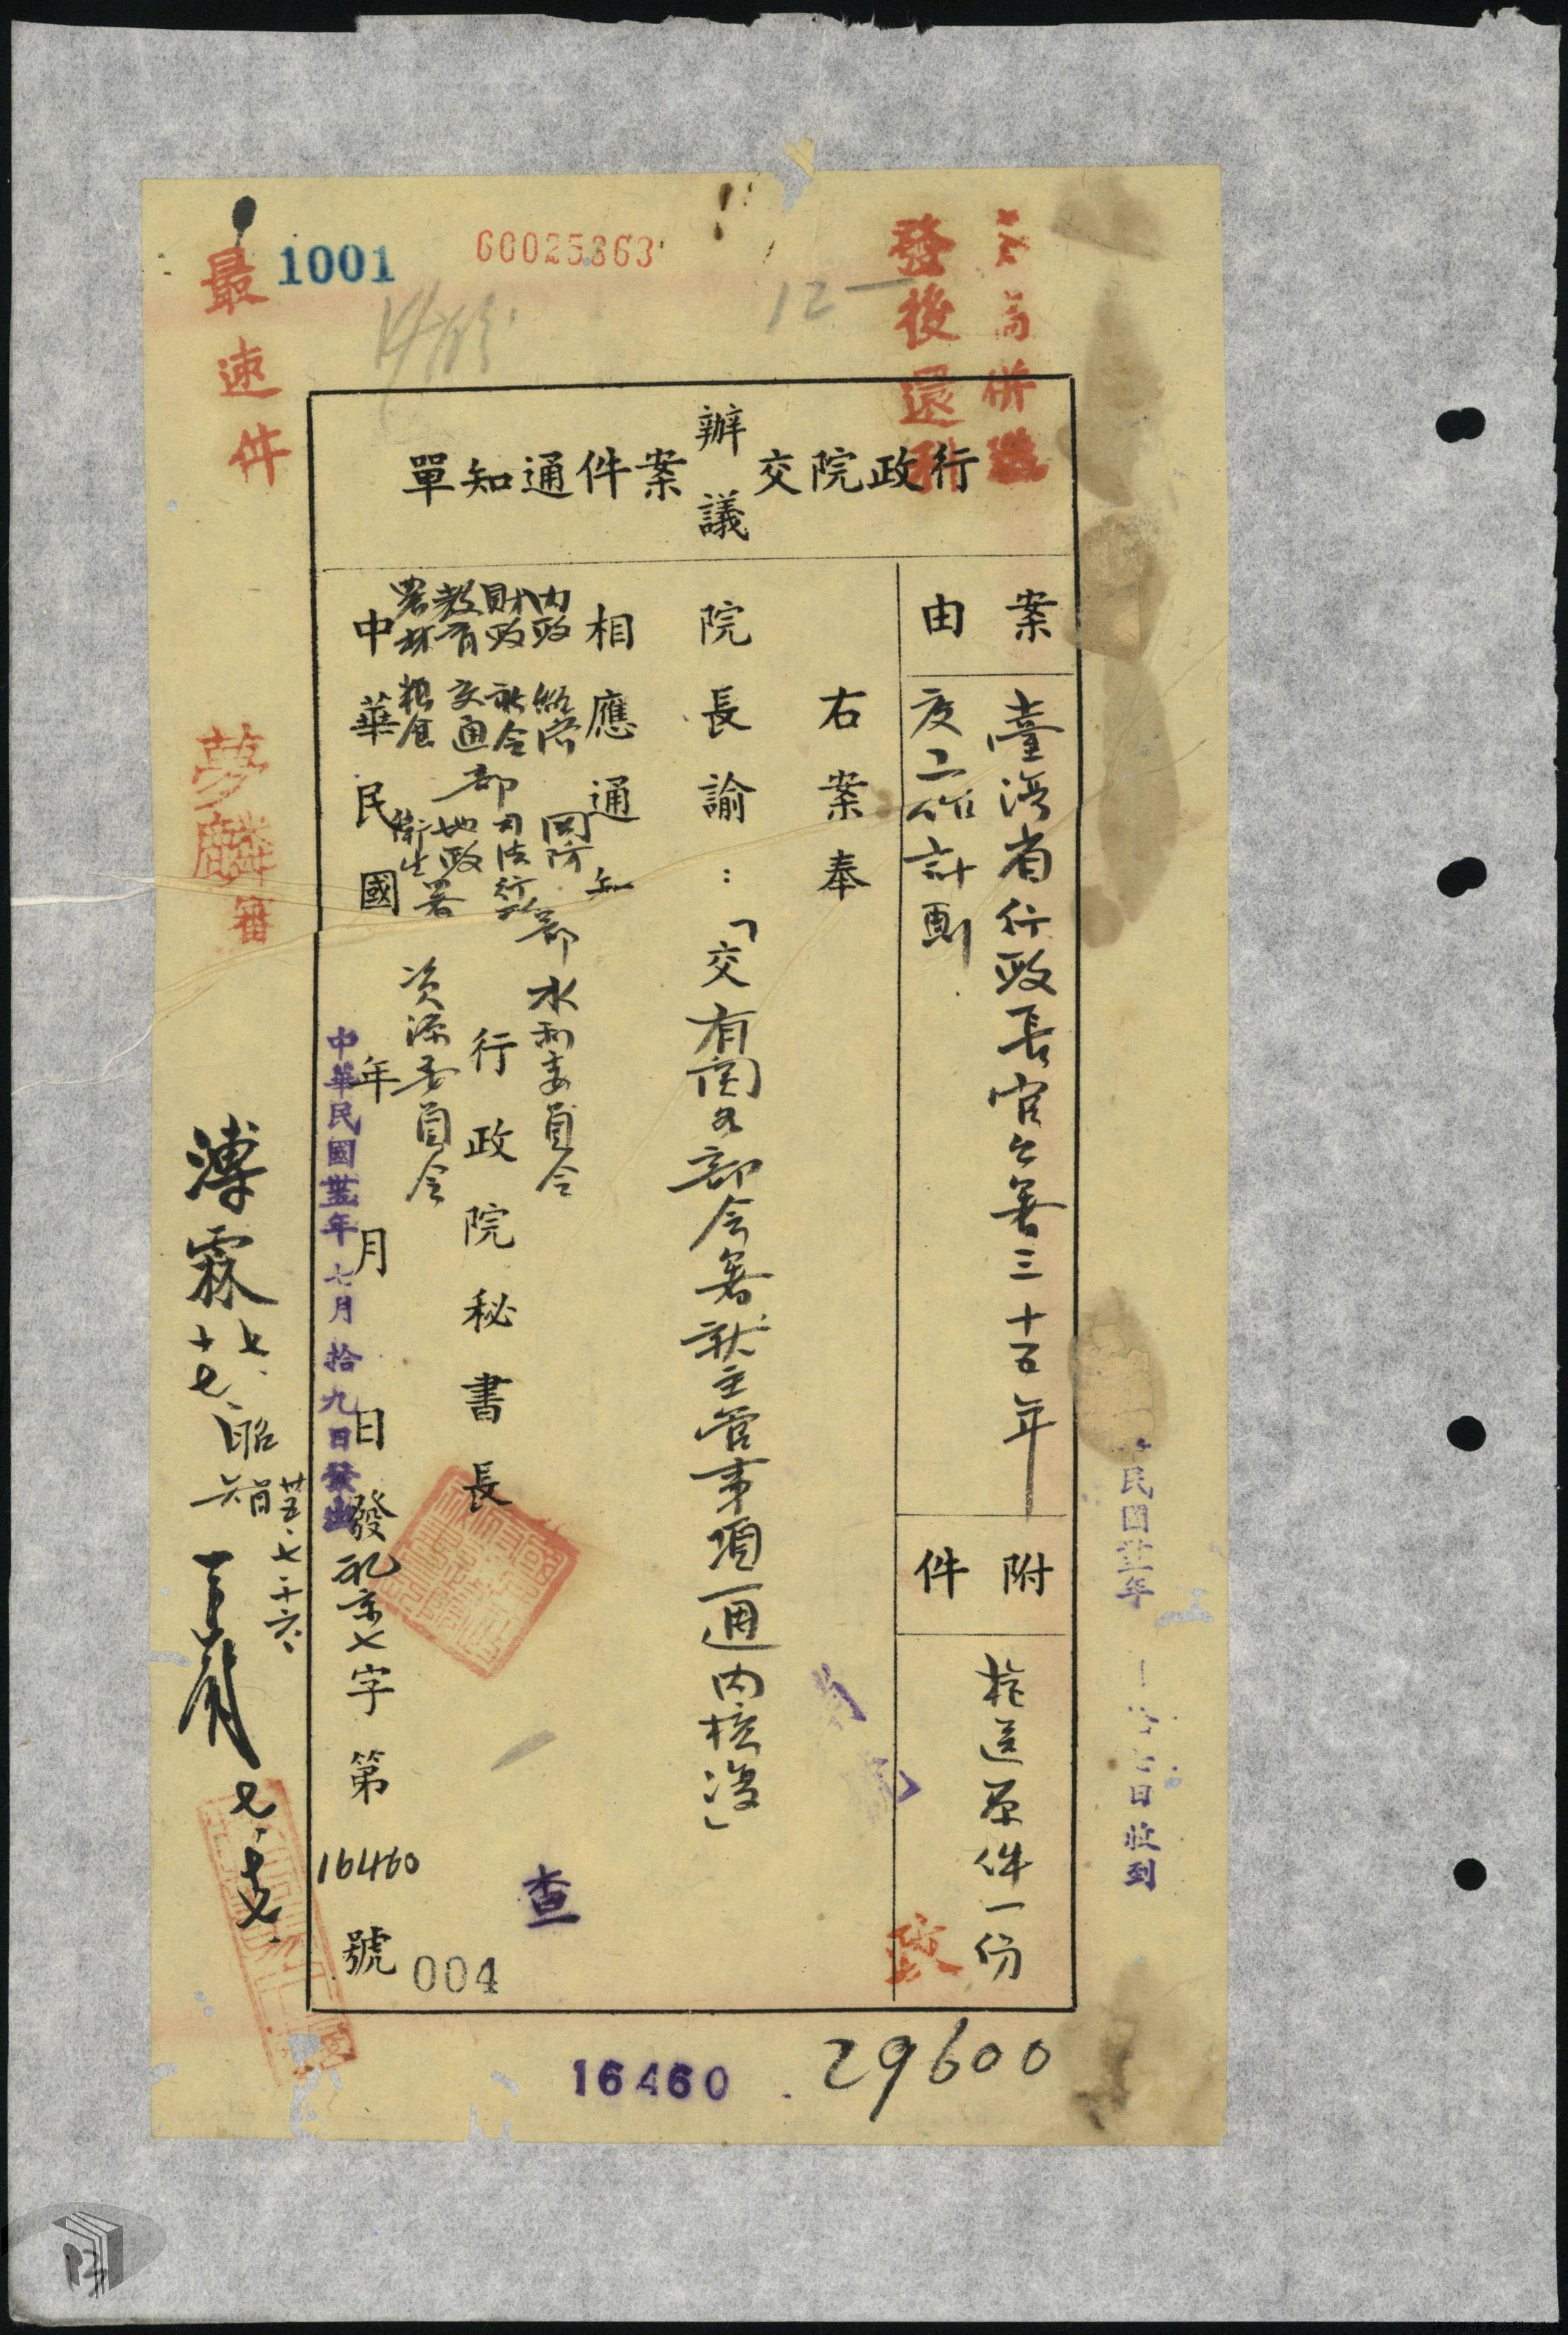 1001
60025363
12一
發後還稿
最速件
行政院交辦議案件通知單
案由
臺灣省行政長官公署三十五年
度工作計劃
附件
抄送原件一份
右案奉
院長諭：「交有関各部会署就主管事項一週内核復」
相應通知
内政 經济 国防部 水利委員会
財政 社会 司法行政部
教育 交通部 地政署
農林 粮食 衛生署 资源委員会
行政院秘書長
中華民國 年 月 日發
礼京七字第16460號
中華民國卅五年七月拾九日發出
民国卅五年
日收到
夢麟
溥霖
七、十七、
卅五、七、十六、
查
004
16460
29600